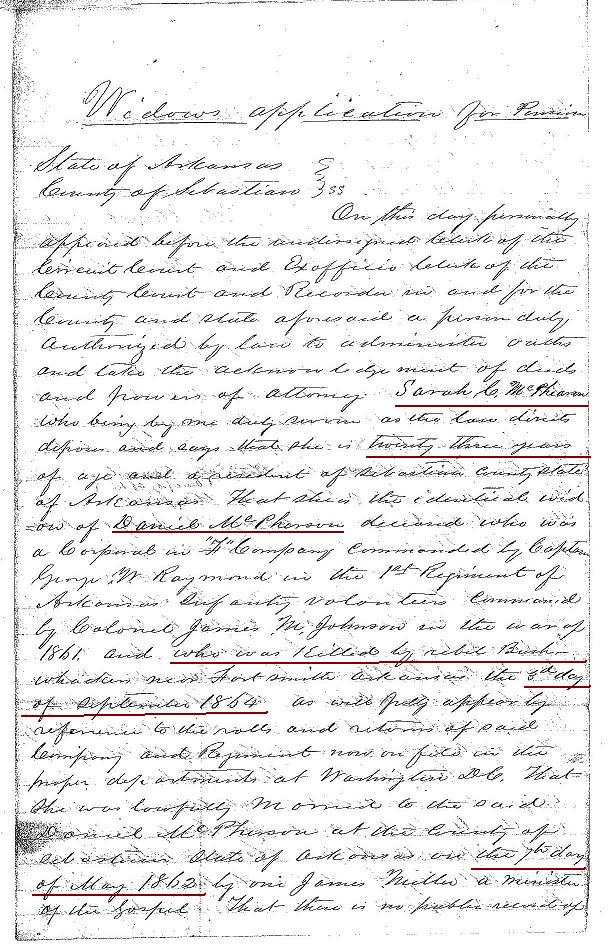 Widows application for Pension
State of Arkansas
County of Sebastian } ss
On this day personally
appeared before the undersigned Clerk of the
Circuit Court and Exofficio Clerk of the
County Court and Recorder in and for the
County and state aforesaid a person duly
Authorized by law to administer oaths
and take the acknowledgement of deeds
and powers of attorney Sarah C. McPhearson
who being by me duly sworn as the law directs
deposes and says that she is twenty three years
of age and a resident of Sebastian County State
of Arkansas That she is the identical wid
=ow of Daniel McPherson deceased who was
a Corporal in "F" Company commanded by Captain
George W Raymond in the 1st Regiment of
Arkansas Infantry volunteers commanded
by Colonel James M. Johnson in the war of
1861 and who was killed by rebel Bush-
whackers near Fort Smith Arkansas the 3d day
of September 1864 as will fully appear by
reference to the rolls and returns of said
Company and Regiment now on file in the
proper departments at Washington D.C. That
she was lawfully Married to the said
Daniel McPherson at the County of
Sebastian State of Arkansas on the 7th day
of May 1862 by one James Miller a minister
of the Gospel That there is no public record of